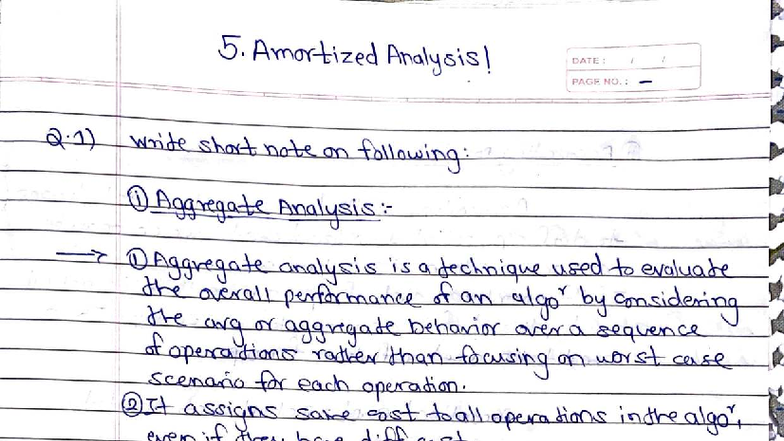 5. Amortized Analysis!
DATE: / /
PAGE NO.: –
Q.1) write short note on following:
① Aggregate Analysis:-
→ ① Aggregate analysis is a technique used to evaluate
the overall performance of an algoʳ by considering
the avg or aggregate behavior over a sequence
of operations rather than focusing on worst case
scenario for each operation.
② It assigns same cost to all operations in the algoʳ,
even if they have